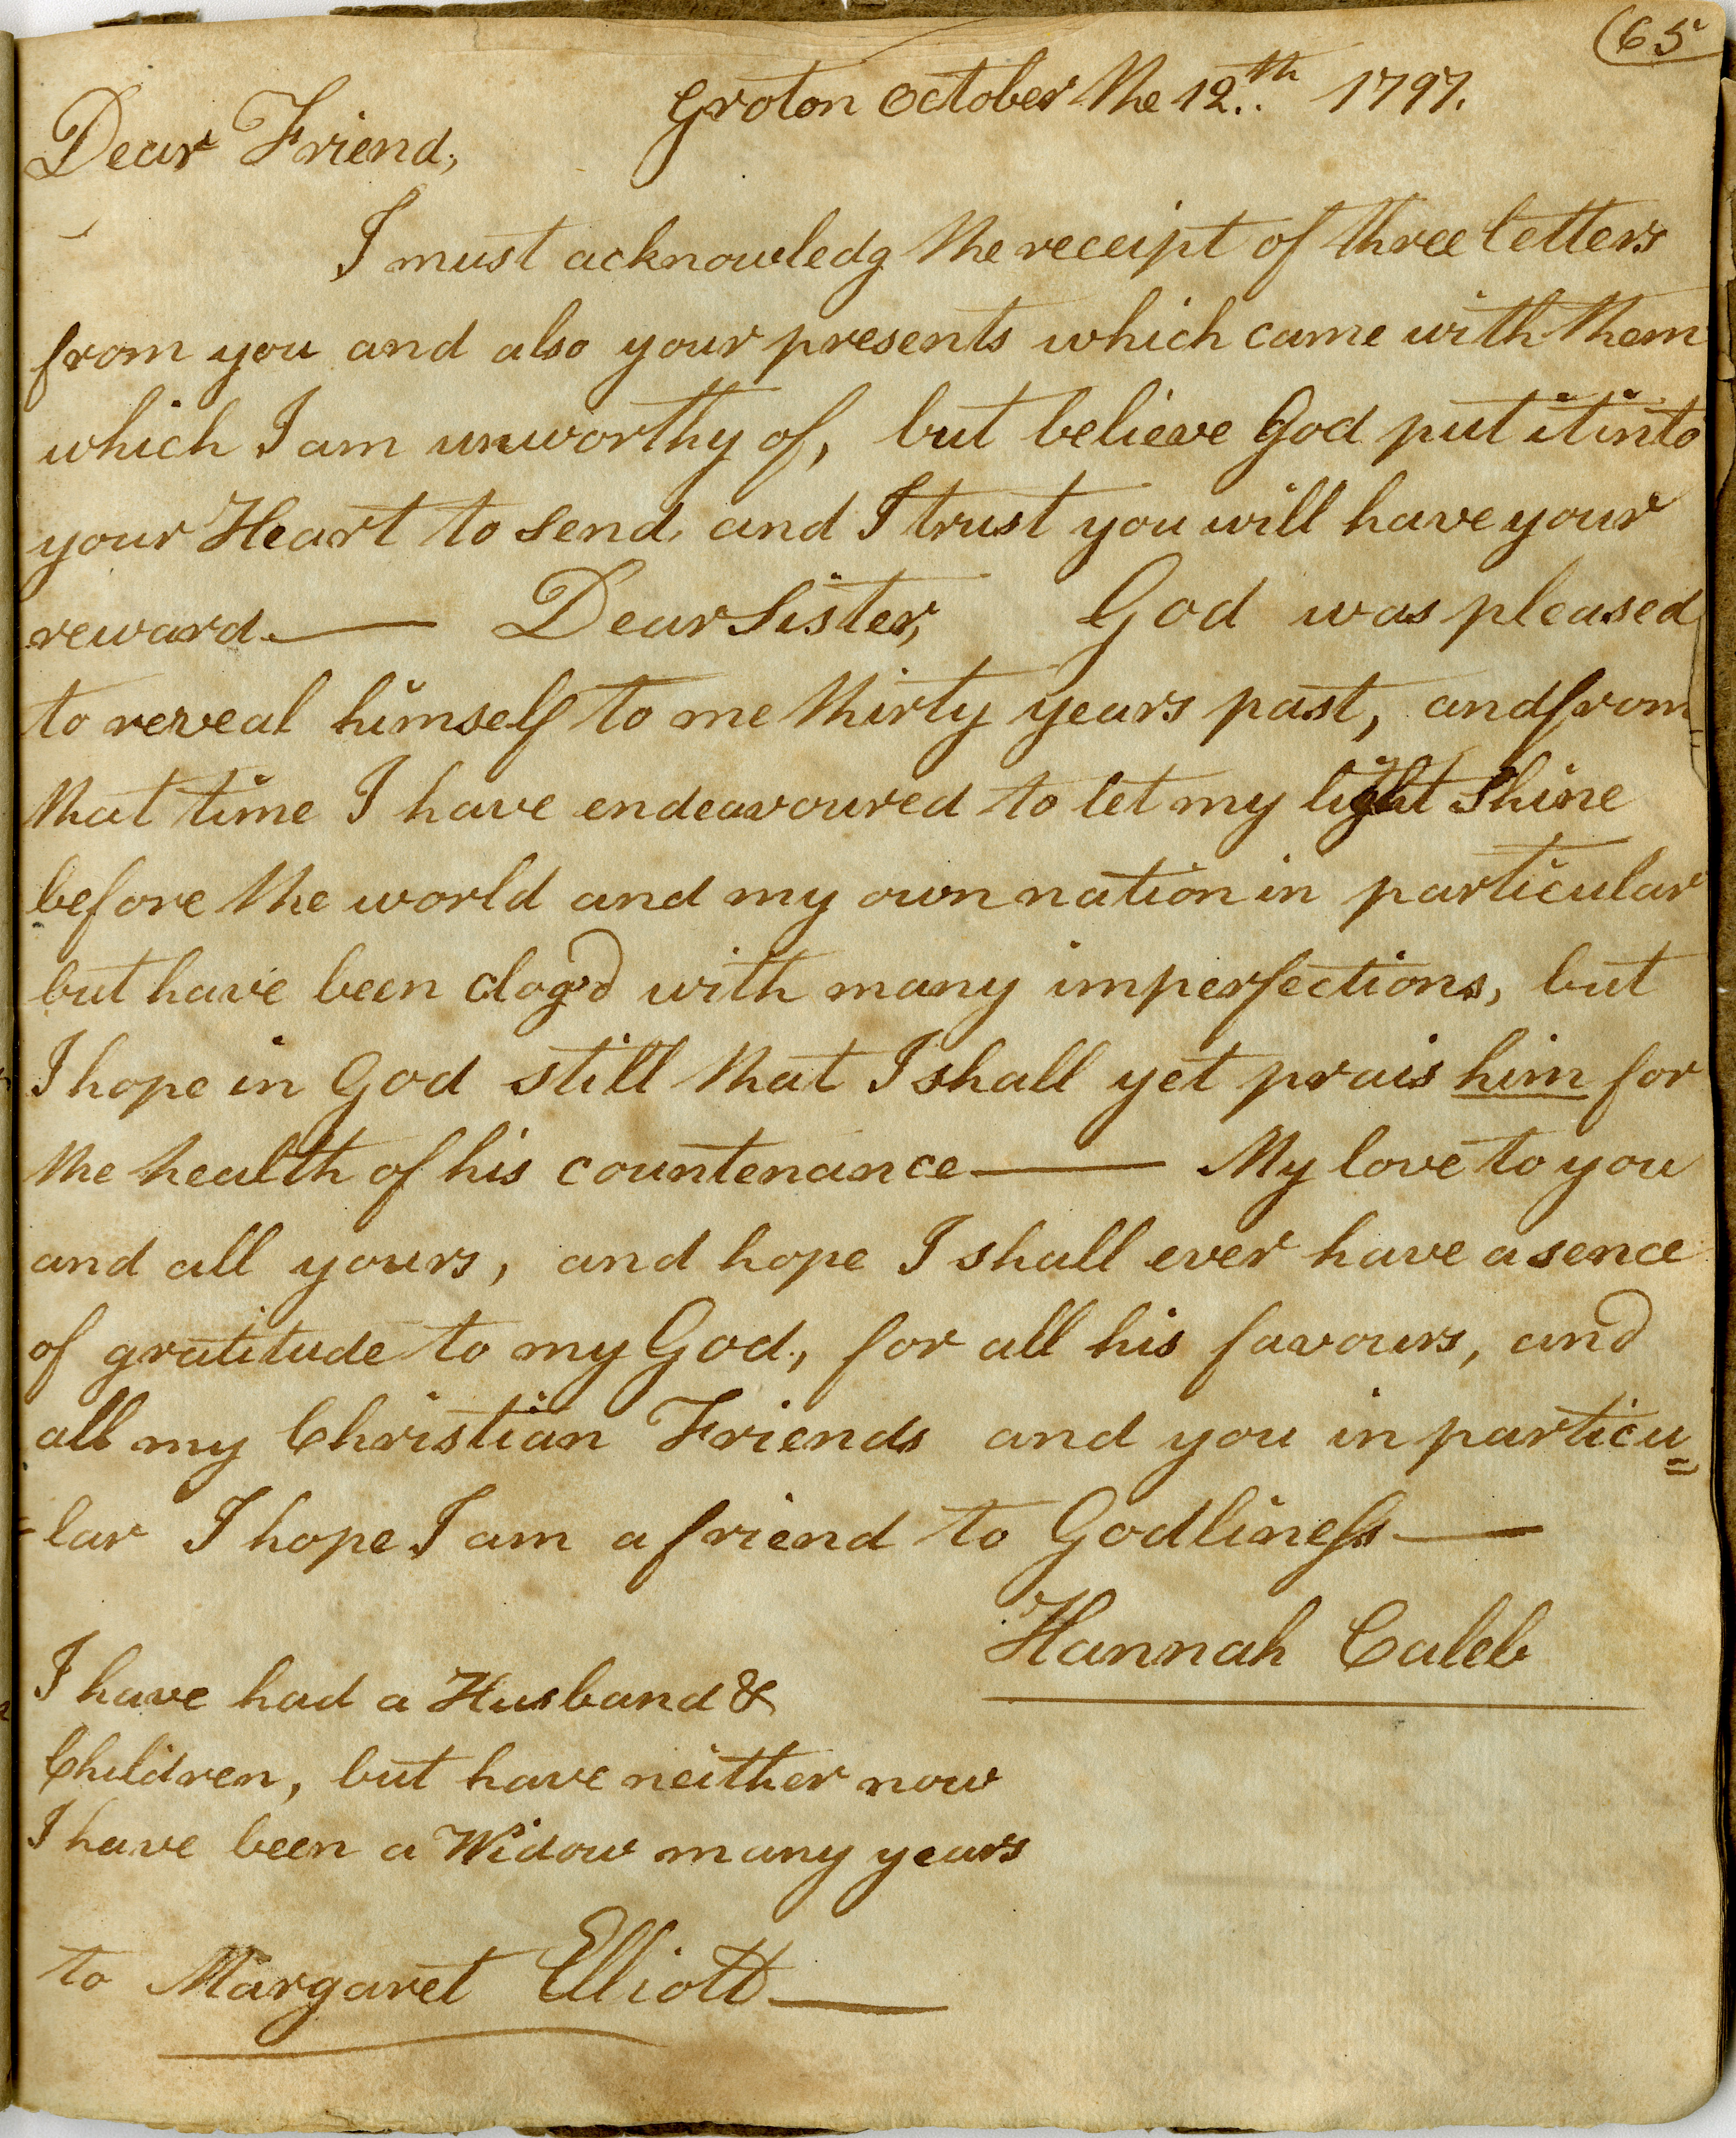 (65
Groton October the 12th 1797.
Dear Friend,
I must acknowledg the receipt of three letters
from you and also your presents which came with them
which I am unworthy of, but believe God put it into
your Heart to send, and I trust you will have your
reward.— Dear Sister, God was pleased
to reveal himself to me thirty years past, and from
that time I have endeavoured to let my light shine
before the world and my own nation in particular
but have been clog'd with many imperfections, but
I hope in God still that I shall yet prais him for
the health of his countenance— My love to you
and all yours, and hope I shall ever have a sence
of gratitude to my God, for all his favours, and
all my Christian Friends and you in particu=
=lar I hope I am a friend to Godliness—
Hannah Caleb
I have had a Husband &
Children, but have neither now
I have been a Widow many years
to Margaret Elliott—